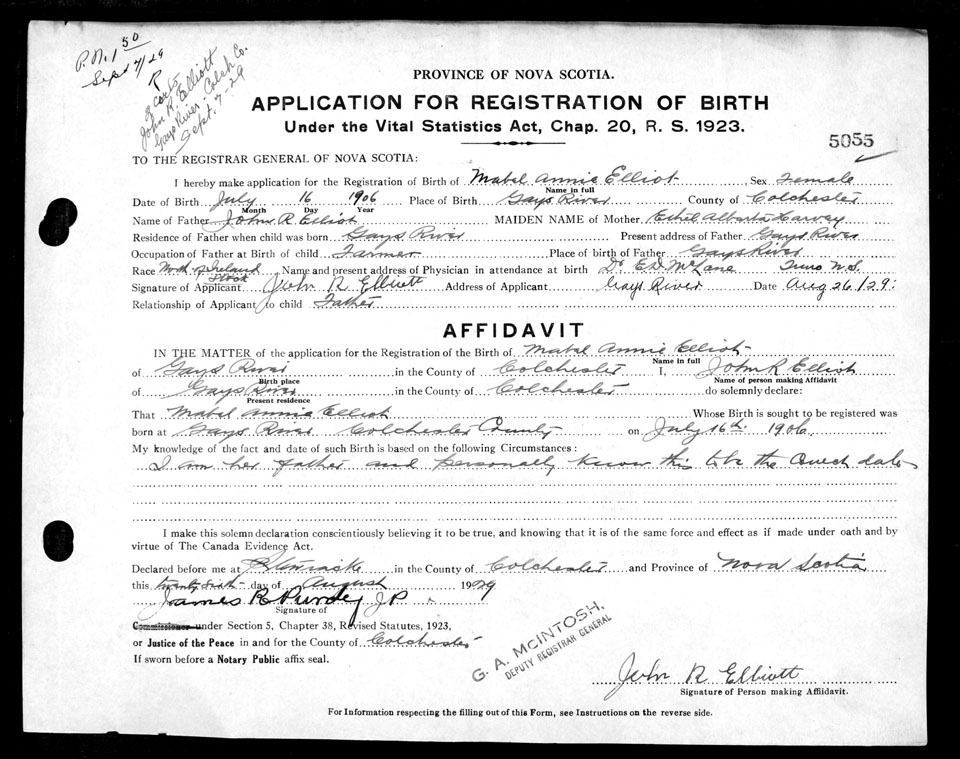 P.N. 1 50
Sept 7/29
R
2 certs
John R. Elliott
Gays River, Colch Co.
Sept. 7-29
PROVINCE OF NOVA SCOTIA.
APPLICATION FOR REGISTRATION OF BIRTH
Under the Vital Statistics Act, Chap. 20, R. S. 1923.
5055
TO THE REGISTRAR GENERAL OF NOVA SCOTIA:
I hereby make application for the Registration of Birth of Mabel Annie Elliot Sex Female
Name in full
Date of Birth July 16 1906 Place of Birth Gays River County of Colchester
Month Day Year
Name of Father John R Elliot MAIDEN NAME of Mother Ethel Alberta Harvey
Residence of Father when child was born Gays River Present address of Father Gays River
Occupation of Father at Birth of child Farmer Place of birth of Father Gays River
Race North of Ireland Stock Name and present address of Physician in attendance at birth Dr E D McLane Truro N.S.
Signature of Applicant John R Elliott Address of Applicant Gays River Date Aug 26/29.
Relationship of Applicant to child Father
AFFIDAVIT
IN THE MATTER of the application for the Registration of the Birth of Mabel Annie Elliot
Name in full
of Gays River in the County of Colchester I, John R Elliot
Birth place Name of person making Affidavit
of Gays River in the County of Colchester do solemnly declare:
Present residence
That Mabel Annie Elliot Whose Birth is sought to be registered was
born at Gays River Colchester County on July 16th 1906
My knowledge of the fact and date of such Birth is based on the following Circumstances:
I am her father and personally know this to be the date
I make this solemn declaration conscientiously believing it to be true, and knowing that it is of the same force and effect as if made under oath and by
virtue of The Canada Evidence Act.
Declared before me at in the County of Colchester and Province of Nova Scotia
this twenty sixth day of August 1929
James R Purdy J P
Signature of
Commissioner under Section 5, Chapter 38, Revised Statutes, 1923,
or Justice of the Peace in and for the County of Colchester
If sworn before a Notary Public affix seal.
G. A. MCINTOSH,
DEPUTY REGISTRAR GENERAL
John R Elliott
Signature of Person making Affidavit.
For Information respecting the filling out of this Form, see Instructions on the reverse side.